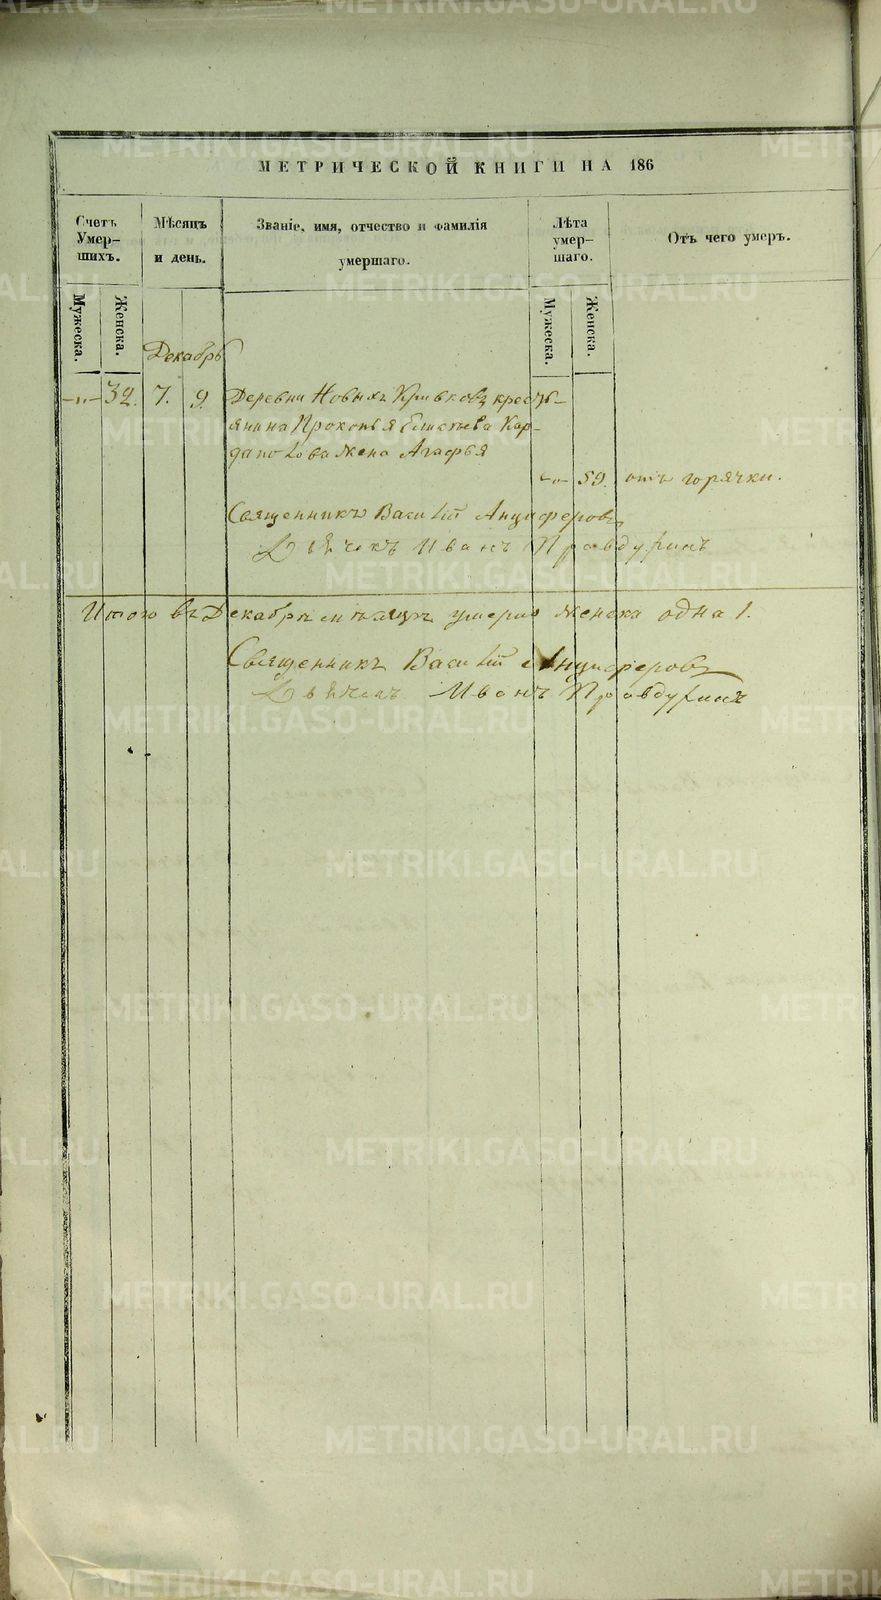 МЕТРИЧЕСКОЙ КНИГИ НА 186
Счетъ Умер-шихъ.
Мѣсяцъ и день.
Званіе, имя, отчество и фамилія умершаго.
Лѣта умер-шаго.
Отъ чего умеръ.
Мужеска.
Женска.
Мужеска.
Женска.
Декабрь
-„- 32. 7. 9. Деревни Новыхъ Кривковъ кресть-
янина Прокопья Елисѣева Кар-
даполова жена Агафья
-„- 59. отъ горячки.
Священникъ Василій Анциферовъ
Дьячекъ Иванъ Правдухинъ
Итого въ Декабрѣ мѣсяцѣ умерло женска одна 1.
Священникъ Василій Анциферовъ
Дьячекъ Иванъ Правдухинъ
METRIKI.GASO-URAL.RU